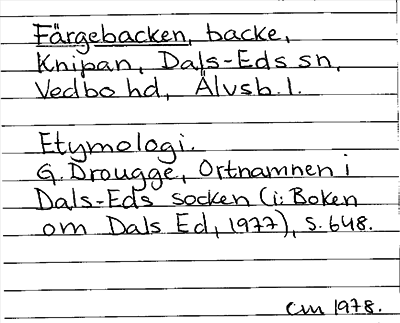 Färgebacken, backe,
Knipan, Dals-Eds sn,
Vedbo hd, Älvsb. l.
Etymologi.
G. Drougge, Ortnamnen i
Dals-Eds socken (i: Boken
om Dals Ed, 1977), s. 648.
CM 1978.